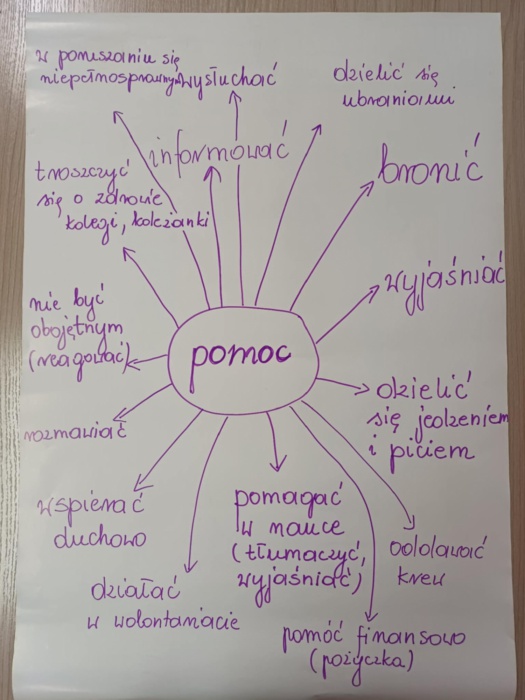 w poruszaniu się
niepełnosprawnym
wysłuchać
dzielić się
ubraniami
informować
bronić
troszczyć
się o zdrowie
kolegi, koleżanki
wyjaśniać
nie być
obojętnym
(reagować)
pomoc
dzielić
się jedzeniem
i piciem
rozmawiać
wspierać
duchowo
pomagać
w nauce
(tłumaczyć,
wyjaśniać)
oddawać
krew
działać
w wolontariacie
pomóć finansowo
(pożyczka)